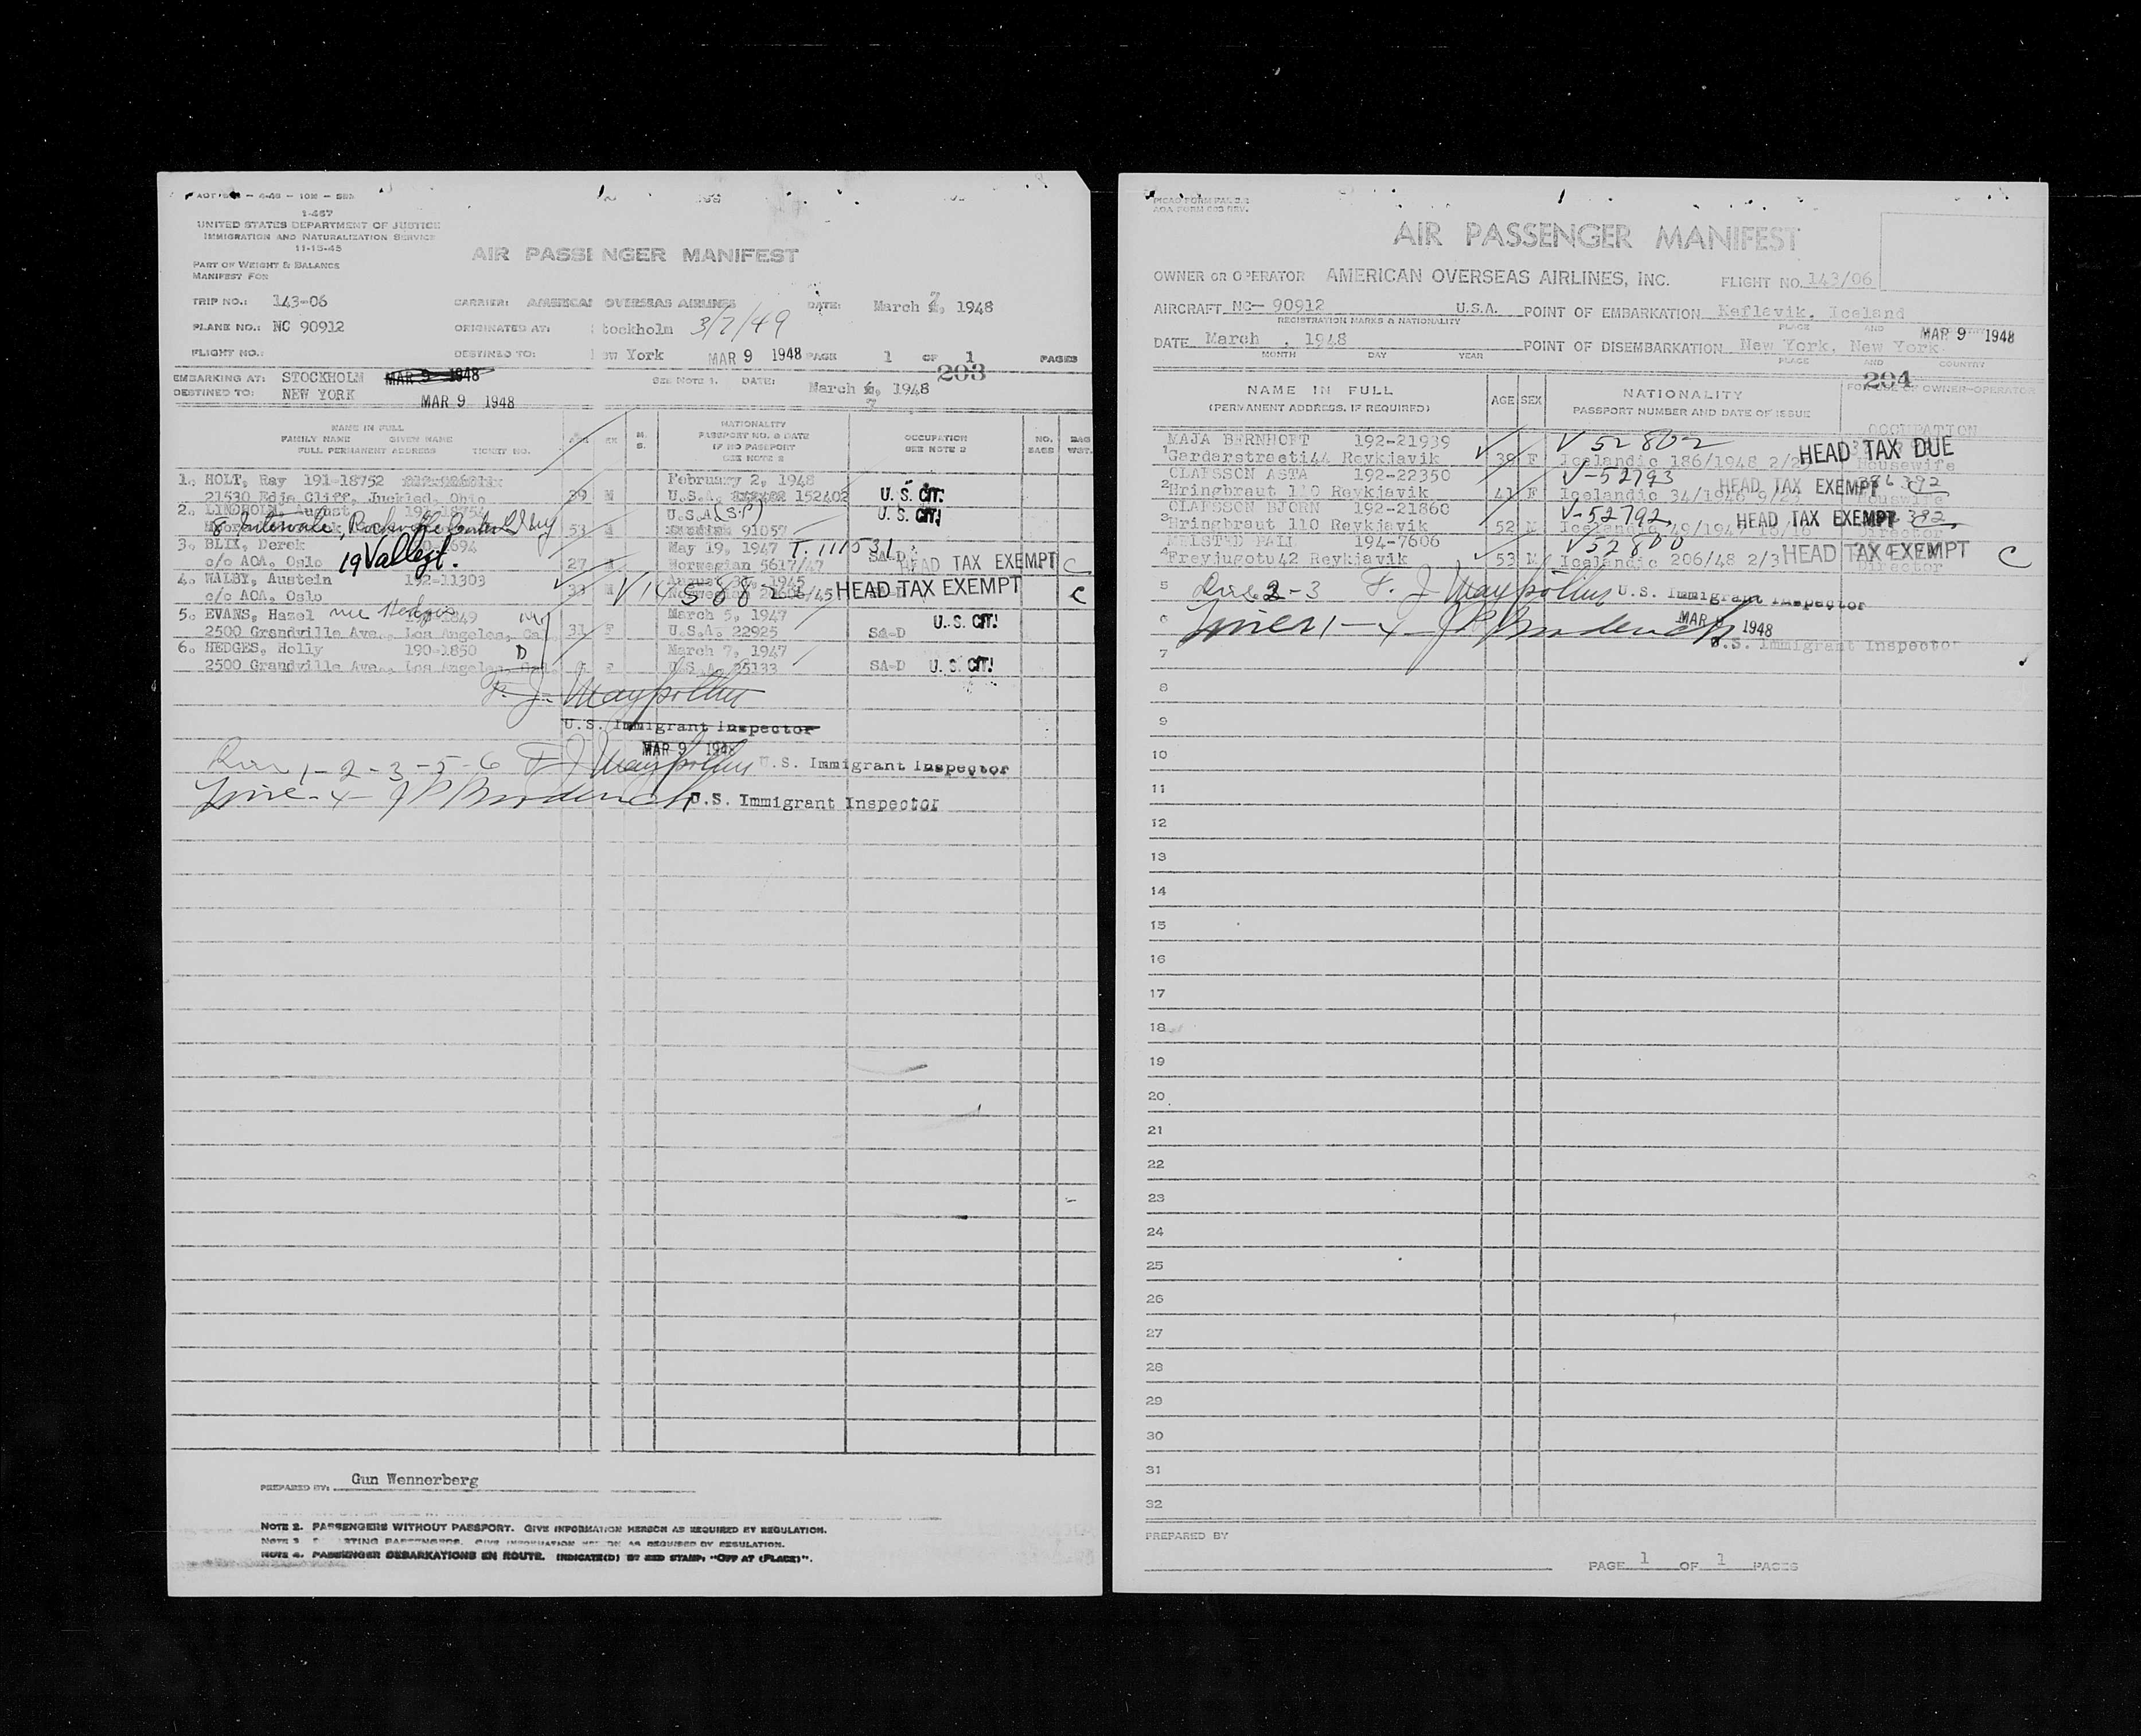 1-467
UNITED STATES DEPARTMENT OF JUSTICE
IMMIGRATION AND NATURALIZATION SERVICE
11-15-45
AIR PASSENGER MANIFEST
PART OF WEIGHT & BALANCE
MANIFEST FOR
TRIP NO.: 143-06 CARRIER: AMERICAN OVERSEAS AIRLINES DATE: March 7, 1948
PLANE NO.: NC 90912 ORIGINATED AT: Stockholm 3/7/49
FLIGHT NO.: DESTINED TO: New York MAR 9 1948 PAGE 1 OF 1 PAGES
203
EMBARKING AT: STOCKHOLM MAR 9 1948 SEE NOTE 1. DATE: March 6, 1948
7
DESTINED TO: NEW YORK MAR 9 1948
NAME IN FULL
FAMILY NAME GIVEN NAME
FULL PERMANENT ADDRESS TICKET NO.
AGE SEX M. S.
NATIONALITY
PASSPORT NO. & DATE
IF NO PASSPORT
SEE NOTE 2
OCCUPATION
SEE NOTE 2
NO. BAGS BAG WGT.
1. HOLT, Ray 191-18752 February 2, 1948
21530 Edje Cliff, Juckled, Ohio 39 M U.S.A. 152402 U. S. CIT.
2. LINDHOLM, August 191-18754 U.S.A. (S.P.) U. S. CIT.
53 M 91057
3. BLIX, Derek May 19, 1947 T. 111531
c/o AOA, Oslo 19 Vallegt. 27 M Norwegian 5617/47 SA-D HEAD TAX EXEMPT C
4. WALBY, Austein 192-11303 1945
c/o AOA, Oslo 33 M Norwegian HEAD TAX EXEMPT C
5. EVANS, Hazel nee Hedges 190-1849 March 5, 1947 U. S. CIT.
2500 Grandville Ave., Los Angeles, Cal. 31 F U.S.A. 22925 SA-D
6. HEDGES, Holly 190-1850 D March 7, 1947
2500 Grandville Ave., Los Angeles, Cal. F U.S.A. 25133 SA-D U. S. CIT.
F. J. Maypolling
U.S. Immigrant Inspector
MAR 9 1948
1-2-3-5-6 F J Maypolling U.S. Immigrant Inspector
Line-4- U.S. Immigrant Inspector
PREPARED BY: Gun Wennerberg
NOTE 2. PASSENGERS WITHOUT PASSPORT. GIVE INFORMATION HEREON AS REQUIRED BY REGULATION.
NOTE 3. PASSENGERS. GIVE INFORMATION HEREON AS REQUIRED BY REGULATION.
NOTE 4. PASSENGER DEBARKATIONS EN ROUTE. INDICATE(D) BY RED STAMP: "OFF AT (PLACE)".
AIR PASSENGER MANIFEST
OWNER OR OPERATOR AMERICAN OVERSEAS AIRLINES, INC. FLIGHT NO. 143/06
AIRCRAFT NC- 90912 U.S.A. POINT OF EMBARKATION Keflavik, Iceland
REGISTRATION MARKS & NATIONALITY PLACE AND COUNTRY
MAR 9 1948
DATE March , 1948 POINT OF DISEMBARKATION New York, New York
MONTH DAY YEAR PLACE AND COUNTRY
204
NAME IN FULL
(PERMANENT ADDRESS, IF REQUIRED)
AGE SEX
NATIONALITY
PASSPORT NUMBER AND DATE OF ISSUE
FOR USE OF OWNER-OPERATOR
OCCUPATION
MAJA BERNHOFT 192-21939 V 52802 HEAD TAX DUE
1 Gardarstraeti44 Reykjavik 39 F Icelandic 186/1948 Housewife
OLAFSSON ASTA 192-22350 V-52793 HEAD TAX EXEMPT
2 Hringbraut 110 Reykjavik 41 F Icelandic 34/1946 Housewife
OLAFSSON BJORN 192-21860 V-52792 HEAD TAX EXEMPT
3 Hringbraut 110 Reykjavik 52 M Icelandic Director
MELSTED PALI 194-7606 V 52800
4 Freyjugotu42 Reykjavik 53 M Icelandic 206/48 2/3 HEAD TAX EXEMPT C
Director
5 2-3 F. J Maypolling U.S. Immigrant Inspector
MAR 9 1948
6 Lines 1-4
7 U.S. Immigrant Inspector
8
9
10
11
12
13
14
15
16
17
18
19
20
21
22
23
24
25
26
27
28
29
30
31
32
PREPARED BY
PAGE 1 OF 1 PAGES